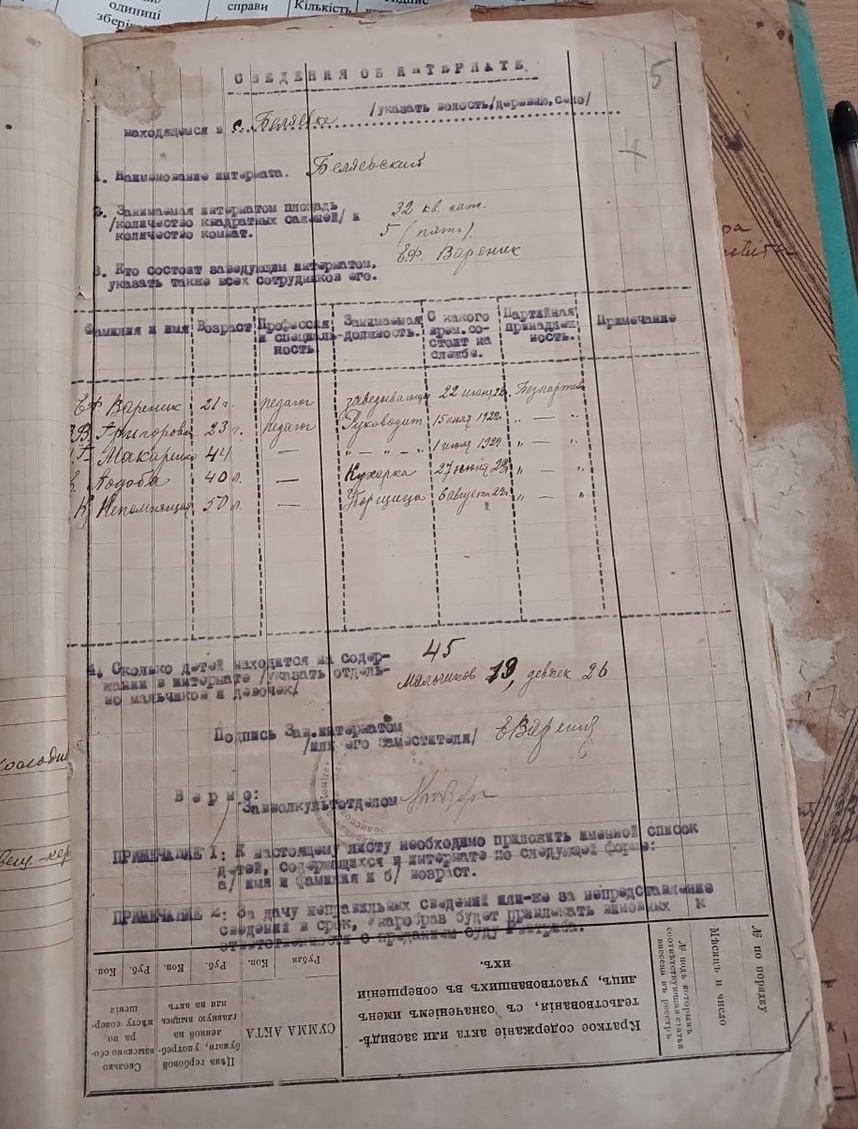 одиниці
справи
Кількість
5
СВЕДЕНИЯ ОБ ИНТЕРНАТЕ,
находящемся в с. Беляевке /указать волость/деревню, село/
1. Наименование интерната. Беляевский
2. Занимаемая интернатом площадь
/количество квадратных саженей/ и
количество комнат.
32 кв. саж.
5 /пять/.
3. Кто состоит заведующим интернатом,
указать также всех сотрудников его.
Вареник
Фамилия и имя
Возраст
Профессия
и специаль-
ность.
Занимаемая
должность.
С какого
врем. со-
стоит на
службе.
Партийная
принадлеж
ность.
Примечание
Вареник 21 г. педагог 22 июня
Григорова 23 г. педагог Руководит 15 июля 1922.
Макаренко 44 — „ — „ — „ 1 июля 1922.
40 л. — Кухарка
Непомнящая 50 л. — 6 август
4. Сколько детей находится на содер-
жании в интернате /указать отдель-
но мальчиков и девочек/
45
Мальчиков 19, девочек 26
Подпись Зав.интернатом
/или его заместителя/ Вареник
Верно:
Заввolкультотделом
ПРИМЕЧАНИЕ 1: К настоящему листу необходимо приложить именной список
детей, содержащихся в интернате по следующей форме:
а/ имя и фамилия и б/ возраст.
ПРИМЕЧАНИЕ 2: За дачу неправильных сведений или-же за непредставление
сведений в срок, Унаробраз будет привлекать виновных к
ответственности с преданием суду
№ по порядку
Мѣсяцъ и число
№ подъ которымъ
соотвѣтствующія статьи
внесены въ реестръ
Краткое содержаніе акта или засвидѣ-
тельствованія, съ означеніемъ именъ
лицъ, участвовавшихъ въ совершеніи
ихъ.
СУММА АКТА
Рубли
Коп.
Цѣна гербовой
бумаги, употреб-
ленной на
главную выпись
или на актъ
Руб.
Коп.
Сколько
взыскано сбо-
ра по
мѣсту совер-
шенія
Руб.
Коп.